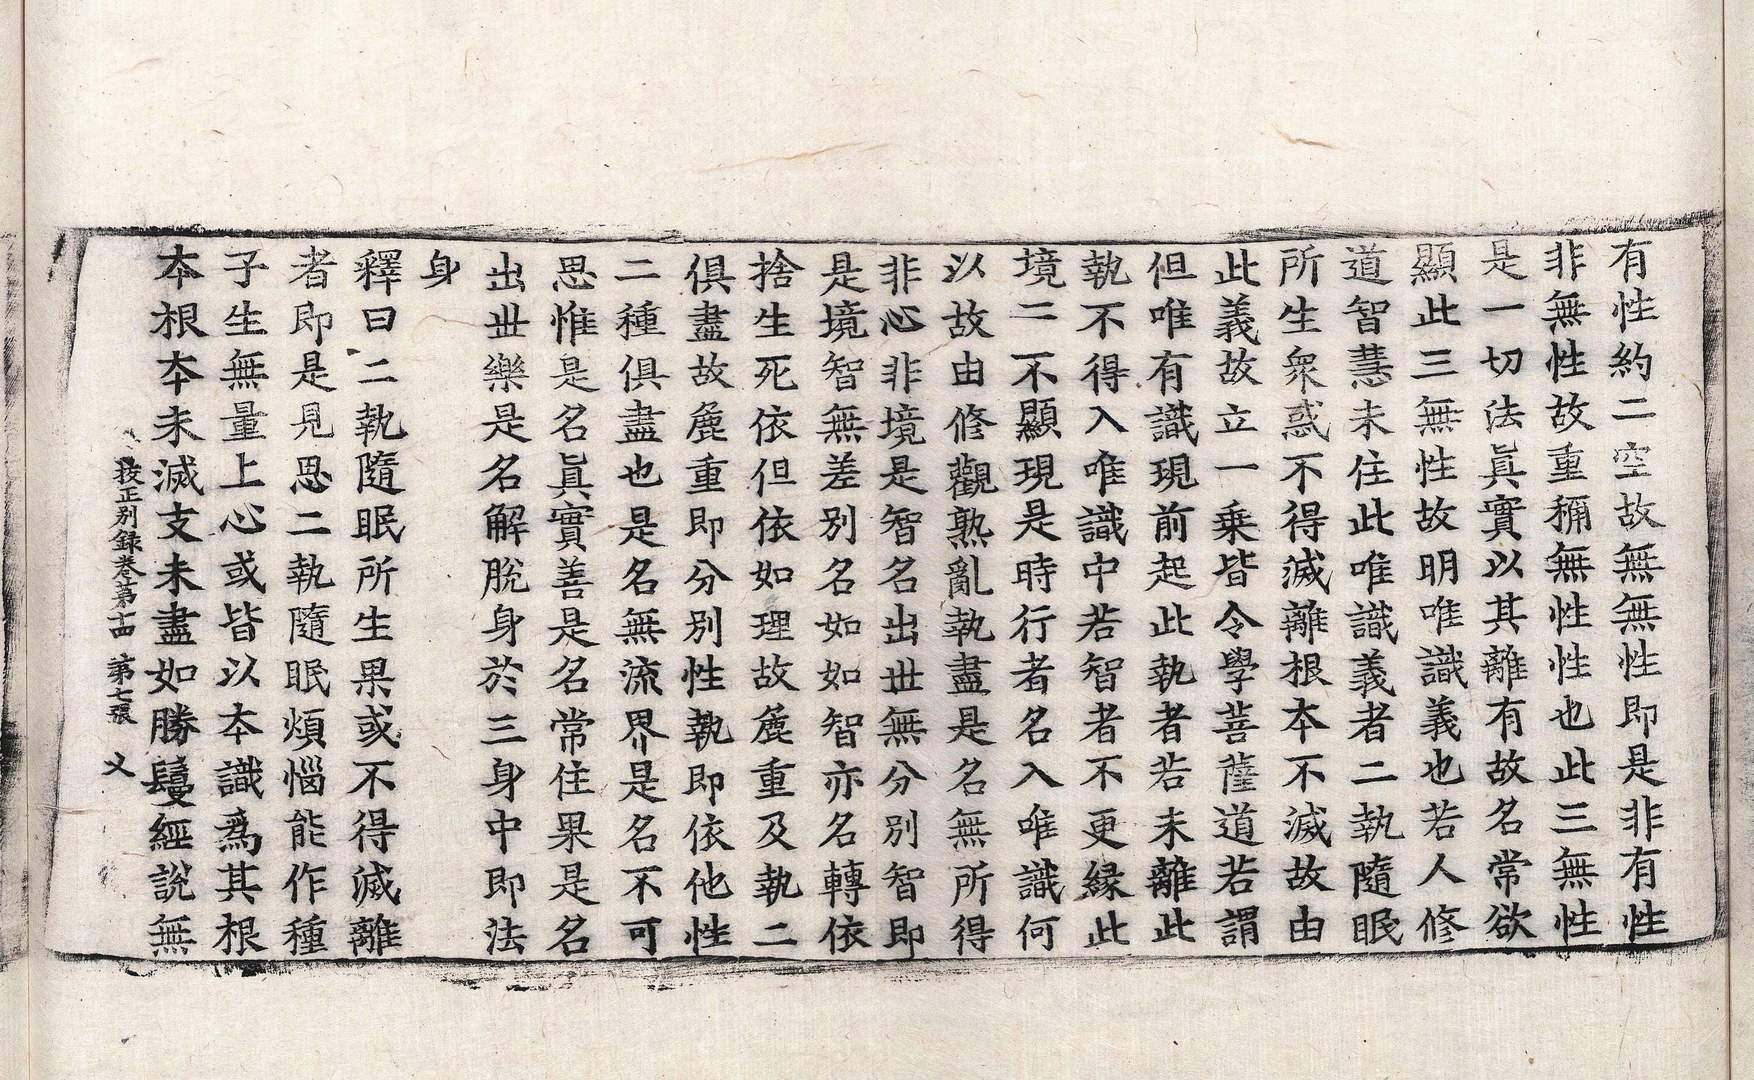 有性約二空故無無性即是非有性
非無性故重稱無性性也此三無性
是一切法眞實以其離有故名常欲
顯此三無性故明唯識義也若人修
道智慧未住此唯識義者二執隨眠
所生衆惑不得滅離根本不滅故由
此義故立一乘皆令學菩薩道若謂
但唯有識現前起此執者若未離此
執不得入唯識中若智者不更緣此
境二不顯現是時行者名入唯識何
以故由修觀熟亂執盡是名無所得
非心非境是智名出世無分別智即
是境智無差別名如如智亦名轉依
捨生死依但依如理故麁重及執二
俱盡故麁重即分別性執即依他性
二種俱盡也是名無流界是名不可
思惟是名眞實善是名常住果是名
出世樂是名解脫身於三身中即法
身
釋曰二執隨眠所生果或不得滅離
者即是見思二執隨眠煩惱能作種
子生無量上心或皆以本識爲其根
本根本未滅支未盡如勝鬘經說無
校正別錄卷第十四 第七張 乂